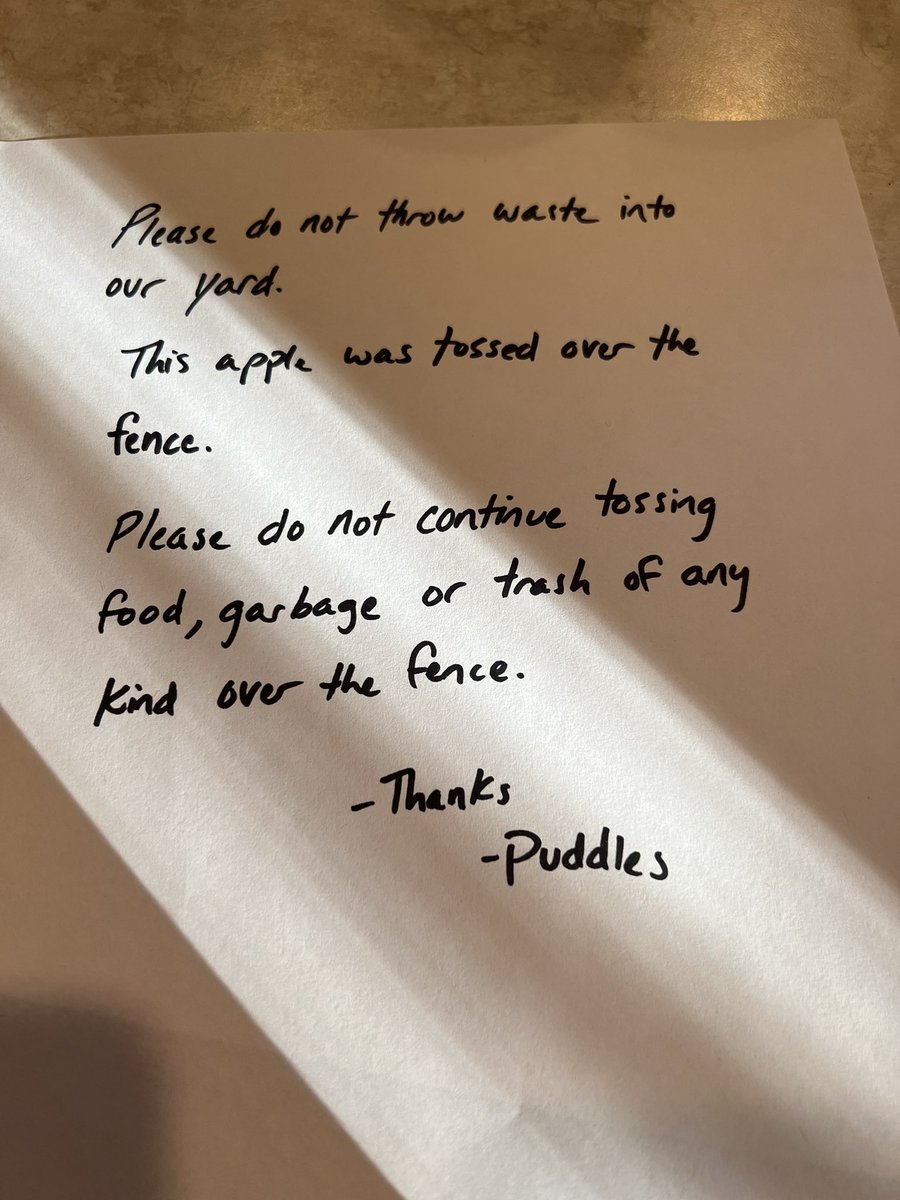 Please do not throw waste into
our yard.
This apple was tossed over the
fence.
Please do not continue tossing
food, garbage or trash of any
kind over the fence.
-Thanks
-Puddles